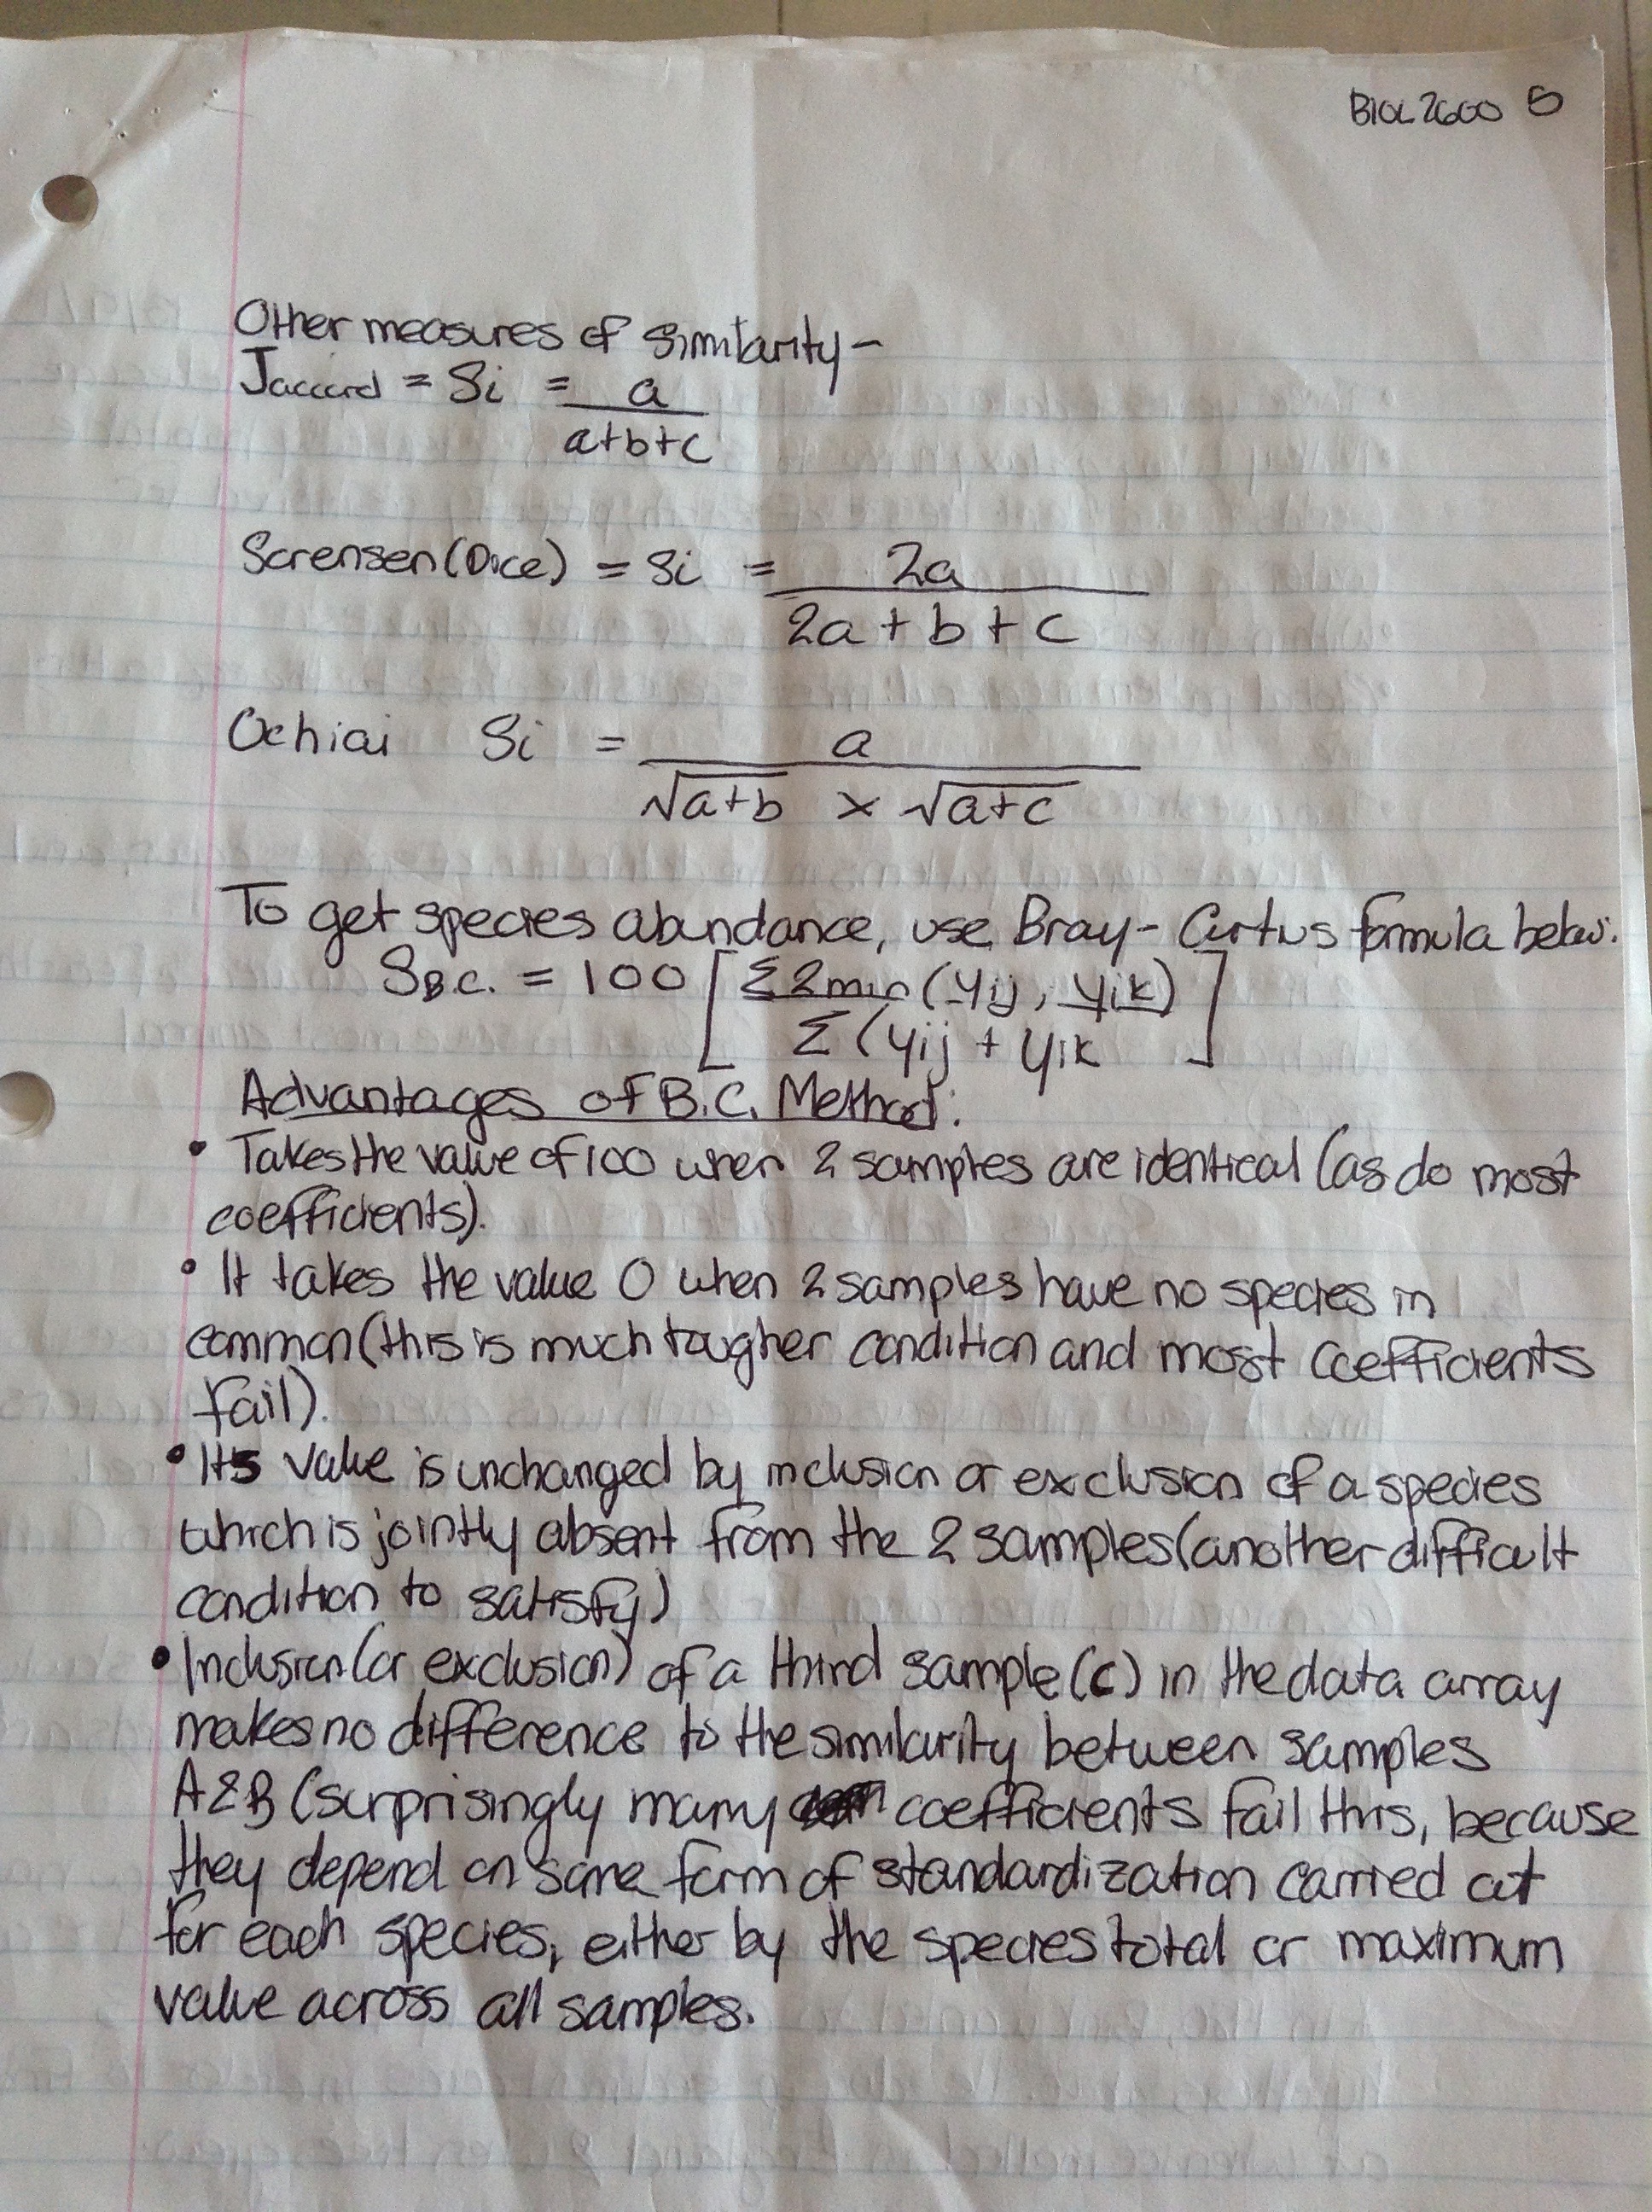 BIOL 2600 5
Other measures of Similarity-
Jaccard = Si = a
a+b+c
Sorensen (Dice) = Si = 2a
2a + b + c
Ochiai Si = a
√a+b × √a+c
To get species abundance, use Bray-Curtus formula below:
SB.C. = 100 [Σ2min (yij, yik)
Σ (yij + yik ]
Advantages of B.C. Method:
• Takes the value of 100 when 2 samples are identical (as do most
coefficients).
• It takes the value 0 when 2 samples have no species in
common (this is much tougher condition and most coefficients
fail).
• Its value is unchanged by inclusion or exclusion of a species
which is jointly absent from the 2 samples (another difficult
condition to satisfy)
• Inclusion (or exclusion) of a third sample (C) in the data array
makes no difference to the similarity between samples
A & B (surprisingly many coefficients fail this, because
they depend on some form of standardization carried out
for each species, either by the species total or maximum
value across all samples.